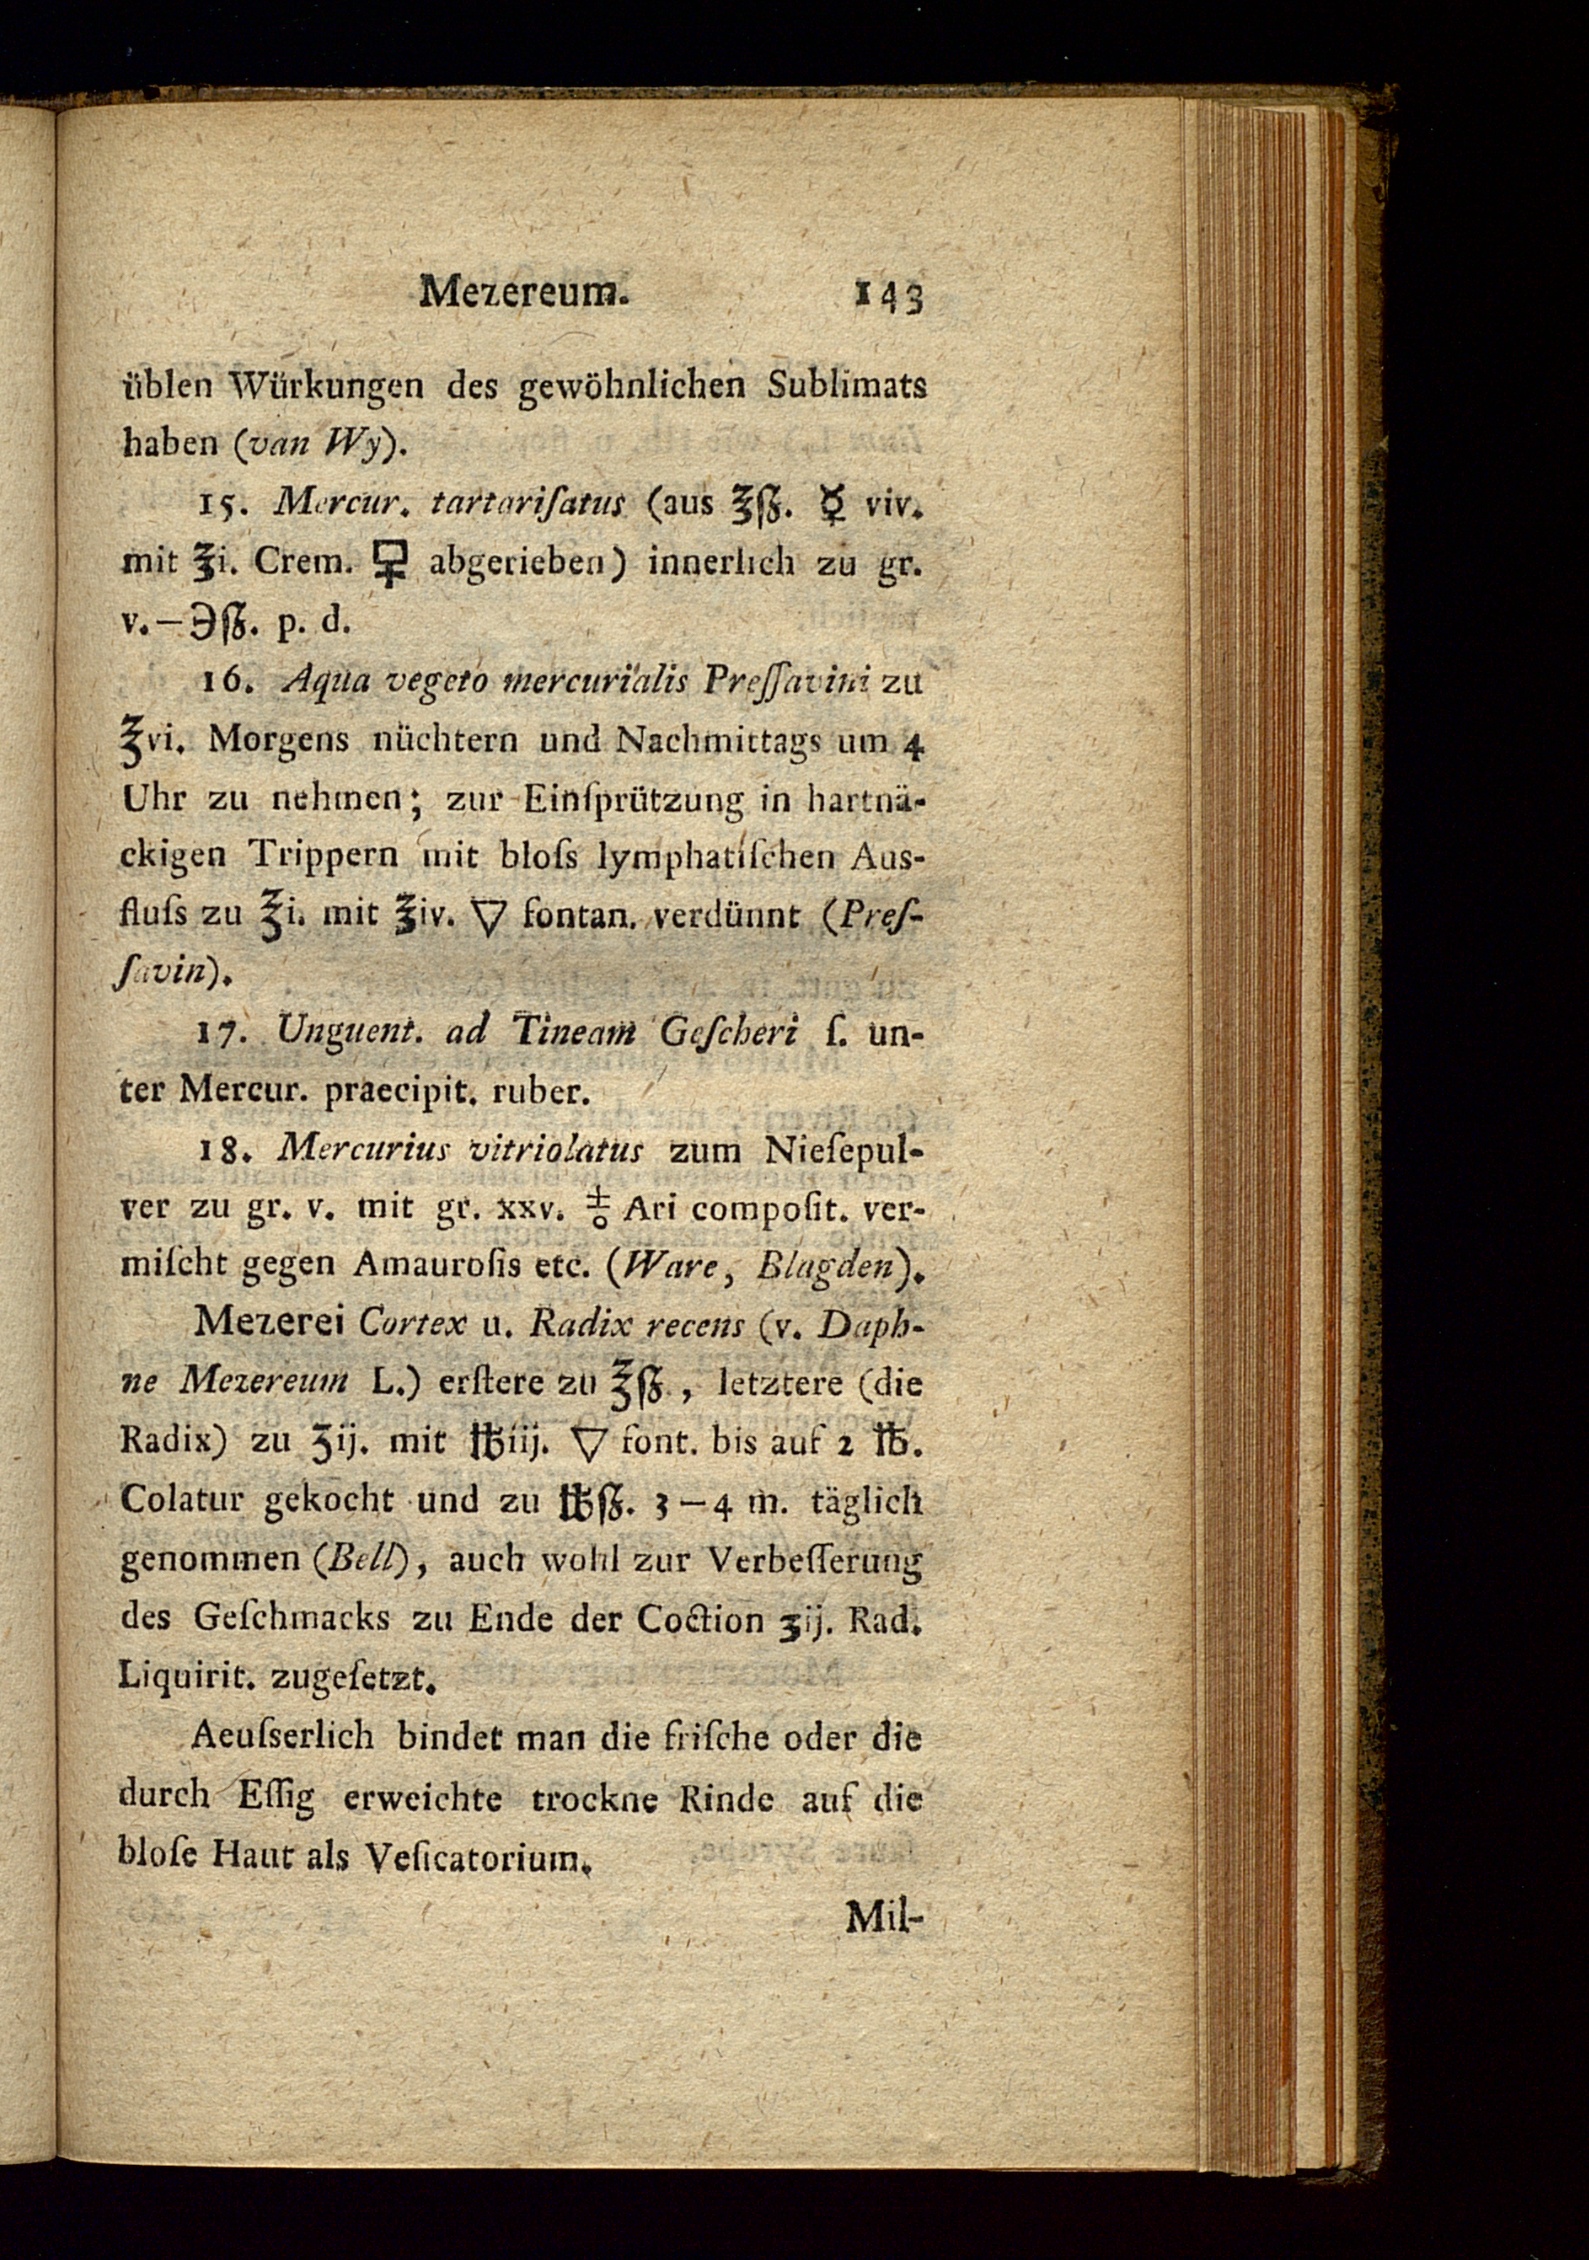 Mezereum. 143
üblen Würkungen des gewöhnlichen Sublimats
haben (van Wy).
15. Mercur. tartariſatus (aus ℥ſʒ. ☿ viv.
mit ℥i. Crem. 🜿 abgerieben) innerlich zu gr.
v.—℈ſʒ. p. d.
16. Aqua vegeto mercurialis Preſſavini zu
℥vi. Morgens nüchtern und Nachmittags um 4
Uhr zu nehmen; zur Einſprützung in hartnä-
ckigen Trippern mit bloſs lymphatiſchen Aus-
fluſs zu ℥i. mit ℥iv. 🜄 fontan. verdünnt (Preſ-
ſavin).
17. Unguent. ad Tineam Geſcheri ſ. un-
ter Mercur. praecipit. ruber.
18. Mercurius vitriolatus zum Nieſepul-
ver zu gr. v. mit gr. xxv. Ari compoſit. ver-
miſcht gegen Amauroſis etc. (Ware, Blagden).
Mezerei Cortex u. Radix recens (v. Daph-
ne Mezereum L.) erſtere zu ℥ſʒ., letztere (die
Radix) zu ʒij. mit ℔iij. 🜄 font. bis auf 2 ℔.
Colatur gekocht und zu ℔ſʒ. 3—4 m. täglich
genommen (Bell), auch wohl zur Verbeſſerung
des Geſchmacks zu Ende der Coction ʒij. Rad.
Liquirit. zugeſetzt.
Aeuſserlich bindet man die friſche oder die
durch Eſſig erweichte trockne Rinde auf die
bloſe Haut als Veſicatorium.
Mil-